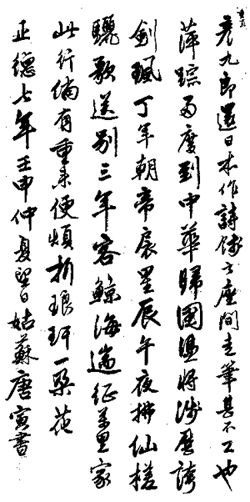 彥九郎還日本作詩餞之座間走筆甚不工也
萍踪兩度到中華歸國憑將涉歷誇
劍珮丁年朝帝扆星辰午夜拂仙槎
驪歌送別三年客鯨海遄征萬里家
此行倘有重來便煩折琅玕一朶花
正德七年壬申仲夏望日姑蘇唐寅書